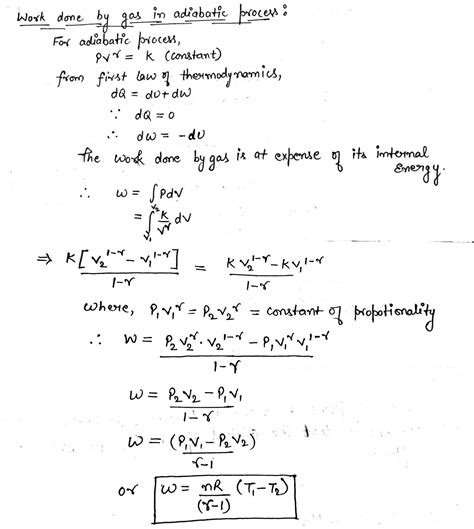 Work done by gas in adiabatic process:
For adiabatic process,
PV^γ = K (constant)
from first law of thermodynamics,
dQ = dU + dW
∵ dQ = 0
∴ dW = -dU
The work done by gas is at expense of its internal
energy.
∴ W = ∫PdV
= ∫_{V₁}^{V₂} K/V^γ dV
⇒ K[V₂^{1-γ} - V₁^{1-γ}]/(1-γ) = (KV₂^{1-γ} - KV₁^{1-γ})/(1-γ)
where, P₁V₁^γ = P₂V₂^γ = constant of propotionality
∴ W = (P₂V₂^γ . V₂^{1-γ} - P₁V₁^γ V₁^{1-γ})/(1-γ)
W = (P₂V₂ - P₁V₁)/(1-γ)
W = (P₁V₁ - P₂V₂)/(γ-1)
or W = nR/(γ-1) (T₁-T₂)